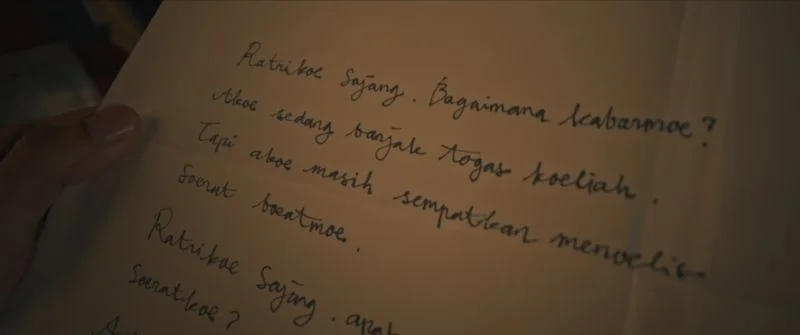 Ratrikoe Sajang. Bagaimana kabarmoe?
Akoe sedang banjak toegas koeliah.
Tapi akoe masih sempatkan menoelis
Soerat boeatmoe.
Ratrikoe Sajang. apa
Soeratkoe?